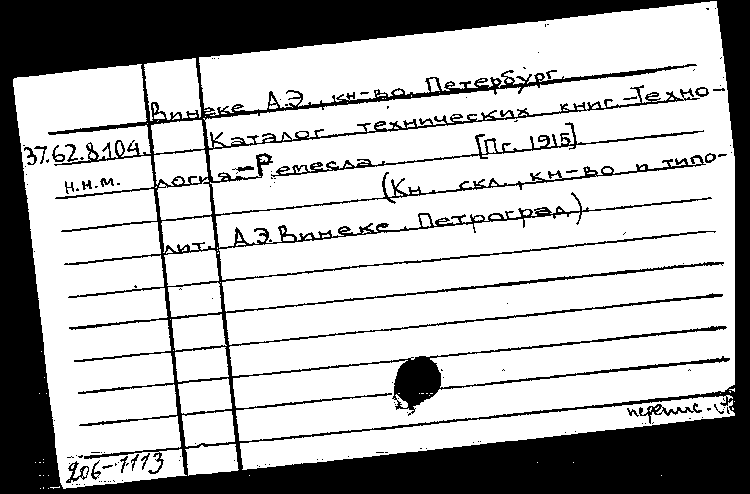 Винеке, А.Э., кн-во. Петербург.
37.62.8.104. Каталог технических книг.-Техно-
н.н.м. логия.-Ремесла. [Пг. 1915].
(Кн. скл., кн-во и типо-
лит. А.Э.Винеке. Петроград).
перепис.
206-1113